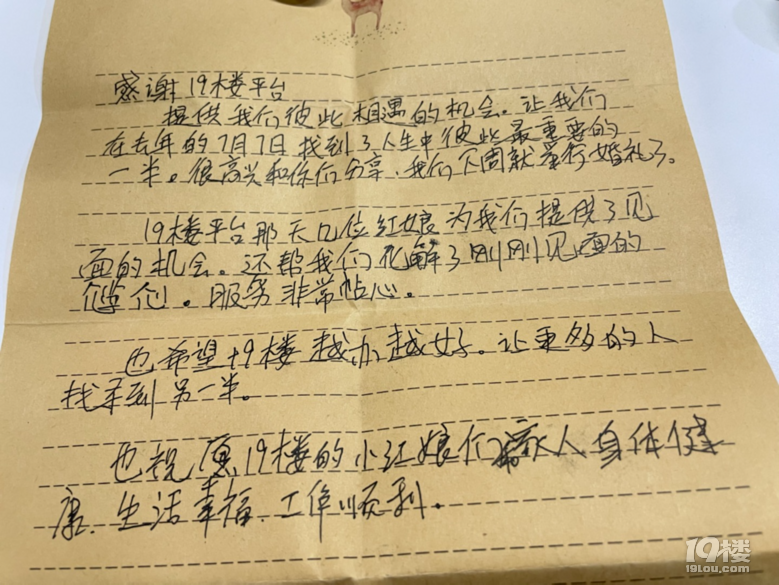 感谢19楼平台
提供我们彼此相遇的机会。让我们
在去年的7月7日找到了人生中彼此最重要的
一半。很高兴和你们分享、我们下周就举行婚礼了。
19楼平台那天几位红娘为我们提供了见
面的机会。还帮我们化解了刚刚见面的
。服务非常贴心。
也希望19楼越办越好。让更多的人
找到另一半。
也祝愿19楼的小红娘们家人身体健
康、生活幸福、工作顺利。
19楼
19lou.com